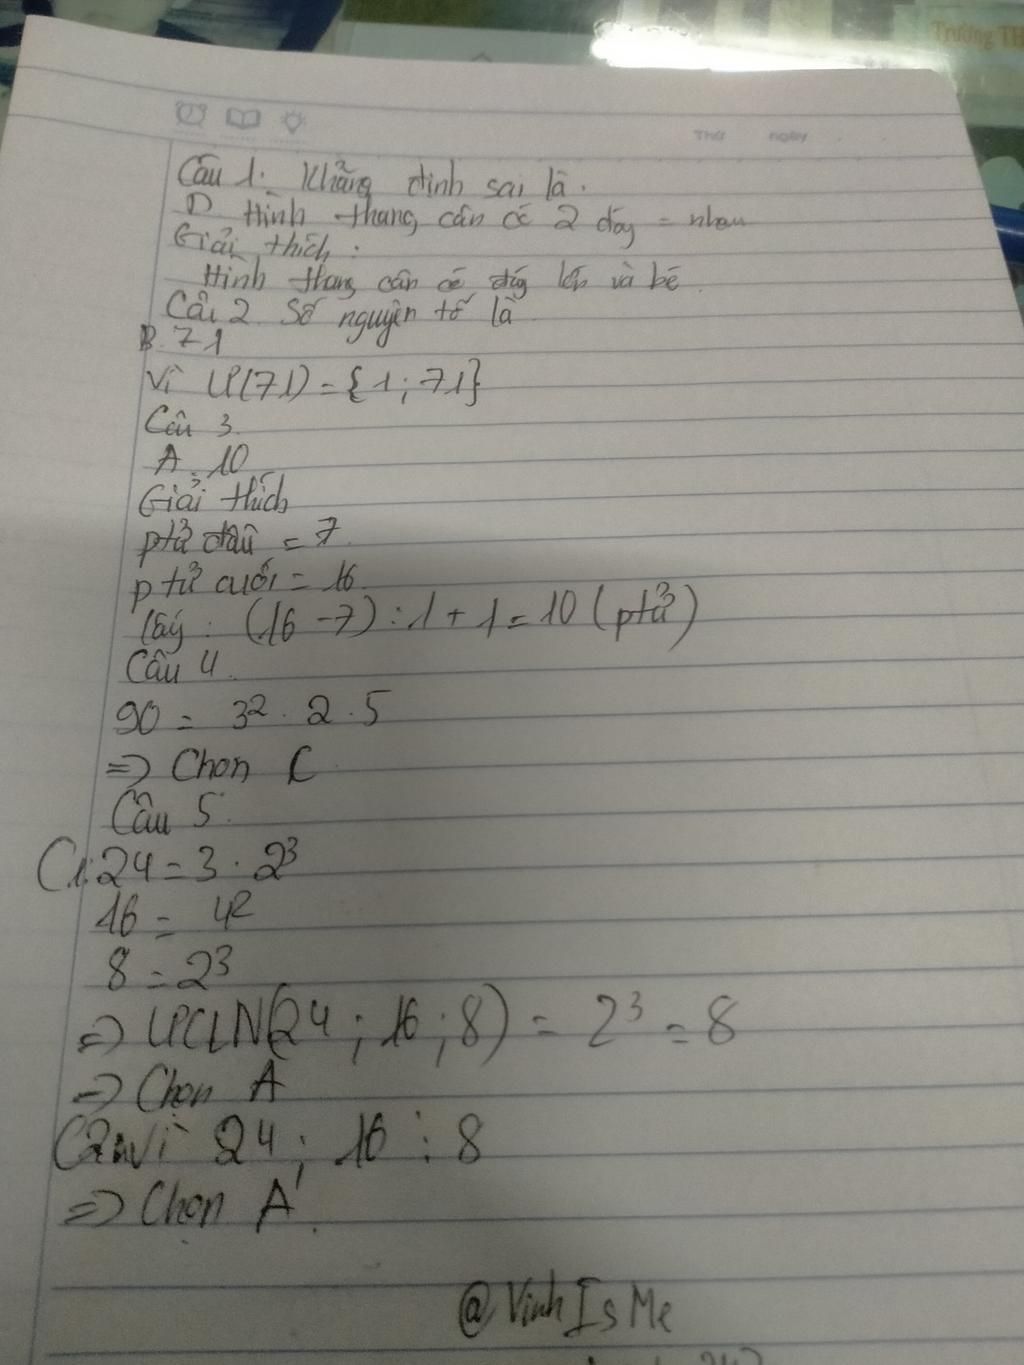 Trường TH
Thứ ngày
Câu 1. Khẳng định sai là.
D Hình thang cân có 2 đáy = nhau
Giải thích:
Hình thang cân có đáy lớn và bé.
Câu 2 Số nguyên tố là
B. 71
Vì Ư(71) = {1; 71}
Câu 3.
A. 10
Giải thích
ptử đầu = 7.
ptử cuối = 16.
lấy: (16 - 7) : 1 + 1 = 10 (ptử)
Câu 4.
90 = 3². 2. 5
=> Chọn C
Câu 5.
C1: 24 = 3 . 2³
16 = 4²
8 = 2³
=> ƯCLN(24; 16; 8) = 2³ = 8
=> Chọn A
C2: Vì 24; 16 ⋮ 8
=> Chọn A.
@VinhIsMe